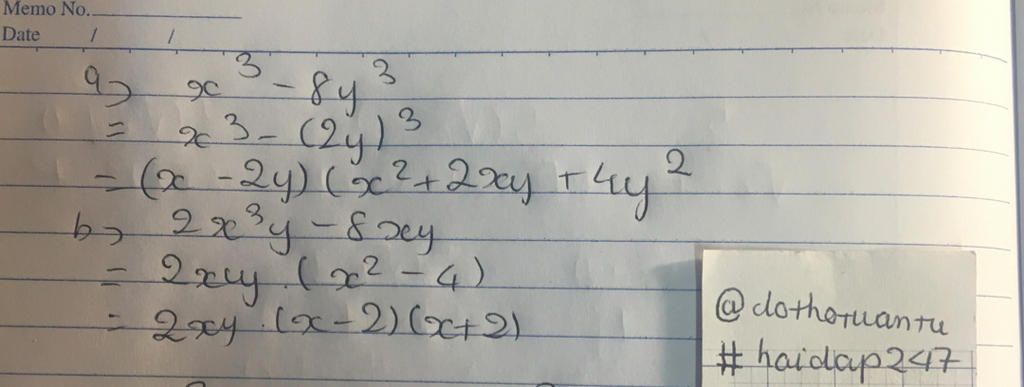 Memo No.
Date / /
a> x³ - 8y³
= x³ - (2y)³
= (x - 2y) (x² + 2xy + 4y²
b> 2x³y - 8xy
= 2xy . (x² - 4)
= 2xy . (x - 2) (x + 2)
@dothotuantu
# haidap247